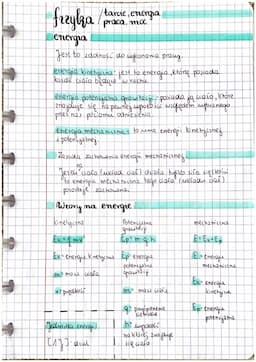 fizyka / tarcie, energia
praca, moc
energia
Jest to zdolność do wykonania pracy.
energia kinetyczna - jest to energia, którą posiada
każde ciało będące w ruchu.
energia potencjalna grawitacji - posiada ją ciało, które
znajduje się na pewnej wysokości względem wybranego
przez nas poziomu odniesienia.
energia mechaniczna - to suma energii kinetycznej
i potencjalnej
Zasada zachowania energii mechanicznej
na
Jeżeli ciało (układ ciał) działa tylko siła ciężkości
to energia mechaniczna tego ciała (układu ciał)
pozostaje zachowana.
Wzory na energię
kinetyczna potencjalna grawitacji mechaniczna
Ek = Ep = m · g · h E = Ek + Ep
Ek - energia kinetyczna Ep - energia potencjalna grawitacji E - energia mechaniczna
m - masa ciała m - masa ciała Ek - energia kinetyczna
v - prędkość g - przyspieszenie Ep - energia potencjalna
Jednostka energii h - wysokość
[1J] - dżul na której znajduje
się ciało